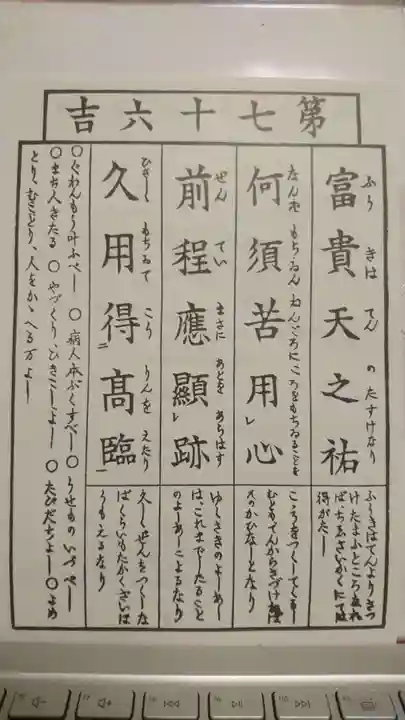 第七十六吉
富貴天之祐
ふうきはてんのたすけなり
ふうきはてんよりさづ
けたまふところなれ
ば、ちゑさいかくにては
得がたし
何須苦用心
なんぞもちゐんねんごろにこころをもちゐることを
こころをつくしてくるし
むともてんからさづけねば
そのかひなしとなり
前程應顯跡
ぜんていまさにあとをあらはす
ゆくさきのよしあし
は、これまでしたること
のよしあしによるなり
久用得高臨
ひさしくもちゐてこうりんをえたり
久しくぜんをつくしな
ばくらいもたかくさいは
うもえるなり
〇ぐわんもう叶ふべし〇病人本ぷくすべし〇うせものいづべし
〇まち人きたる〇やづくりひきこしよし〇たびだちよし〇よめ
とり、むことり、人をかゝへる万よし